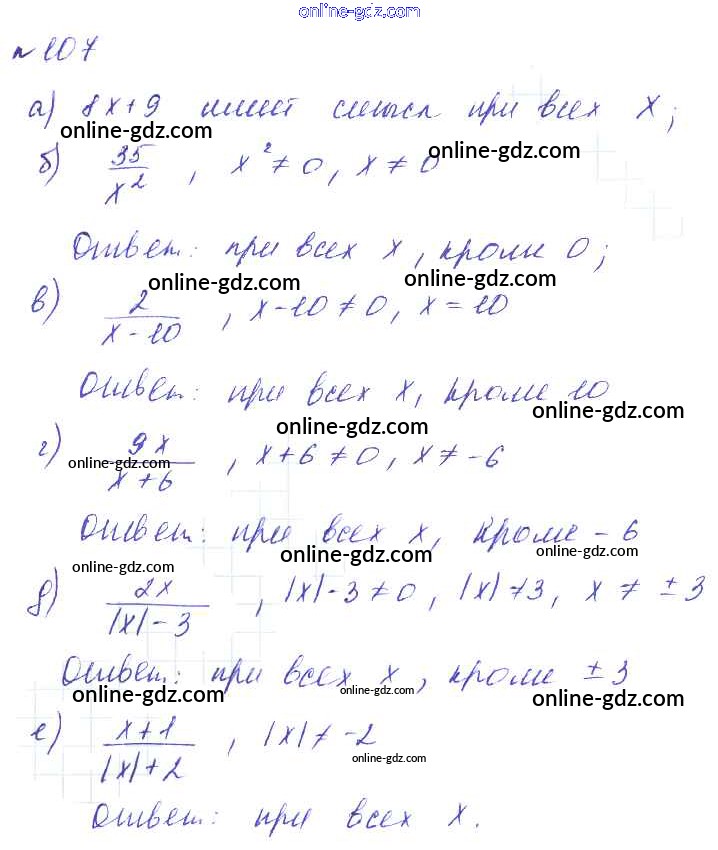 online-gdz.com
№107
а) 8x+9 имеет смысл при всех x;
online-gdz.com
online-gdz.com
б) 35/x², x²≠0, x≠0
Ответ: при всех x, кроме 0;
online-gdz.com
online-gdz.com
в) 2/(x-10), x-10≠0, x=10
Ответ: при всех x, кроме 10
online-gdz.com
online-gdz.com
г) 9x/(x+6), x+6≠0, x≠-6
online-gdz.com
Ответ: при всех x, кроме -6
online-gdz.com
online-gdz.com
online-gdz.com
д) 2x/(|x|-3), |x|-3≠0, |x|≠3, x≠±3
Ответ: при всех x, кроме ±3
online-gdz.com
online-gdz.com
online-gdz.com
е) (x+1)/(|x|+2), |x|≠-2
online-gdz.com
Ответ: при всех x.